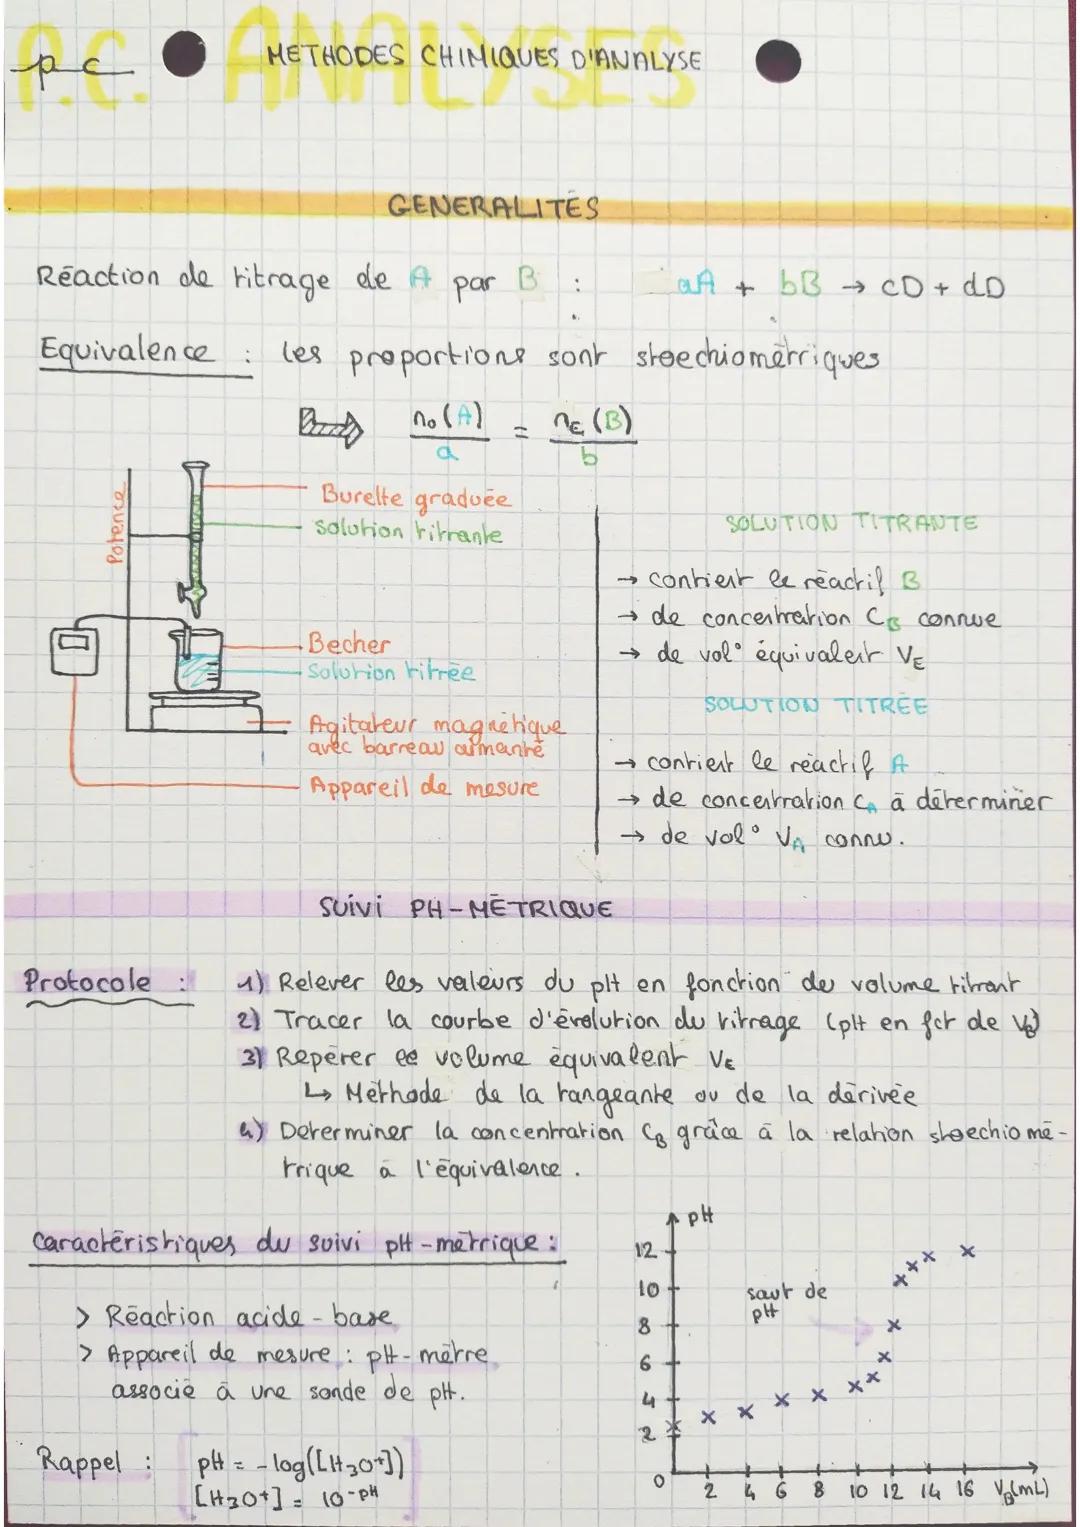 P.C. ANALYSES
pc METHODES CHIMIQUES D'ANALYSE
GENERALITÉS
Réaction de titrage de A par B : aA + bB → cD + dD
Equivalence : les proportions sont stoechiométriques
n₀(A)/a = nE(B)/b
Potence
Burette graduée
solution titrante
Becher
Solution titrée
Agitateur magnétique
avec barreau aimanté
Appareil de mesure
SOLUTION TITRANTE
→ contient le réactif B
→ de concentration CB connue
→ de vol° équivalent VE
SOLUTION TITRÉE
→ contient le réactif A
→ de concentration CA à déterminer
→ de vol° VA connu.
SUIVI PH-MÉTRIQUE
Protocole : 1) Relever les valeurs du pH en fonction du volume titrant
2) Tracer la courbe d'évolution du titrage (pH en fct de VB)
3) Repérer le volume équivalent VE
↳ Méthode de la tangeante ou de la dérivée
4) Determiner la concentration CB grâce à la relation stoechiomé-
trique à l'équivalence.
Caractéristiques du suivi pH-métrique :
> Réaction acide-base
> Appareil de mesure : pH-mètre
associé à une sonde de pH.
Rappel : pH = -log([H3O+])
[H3O+] = 10-pH
pH
12
10
8
6
4
2
0
saut de
pH
2 4 6 8 10 12 14 16 VB(mL)